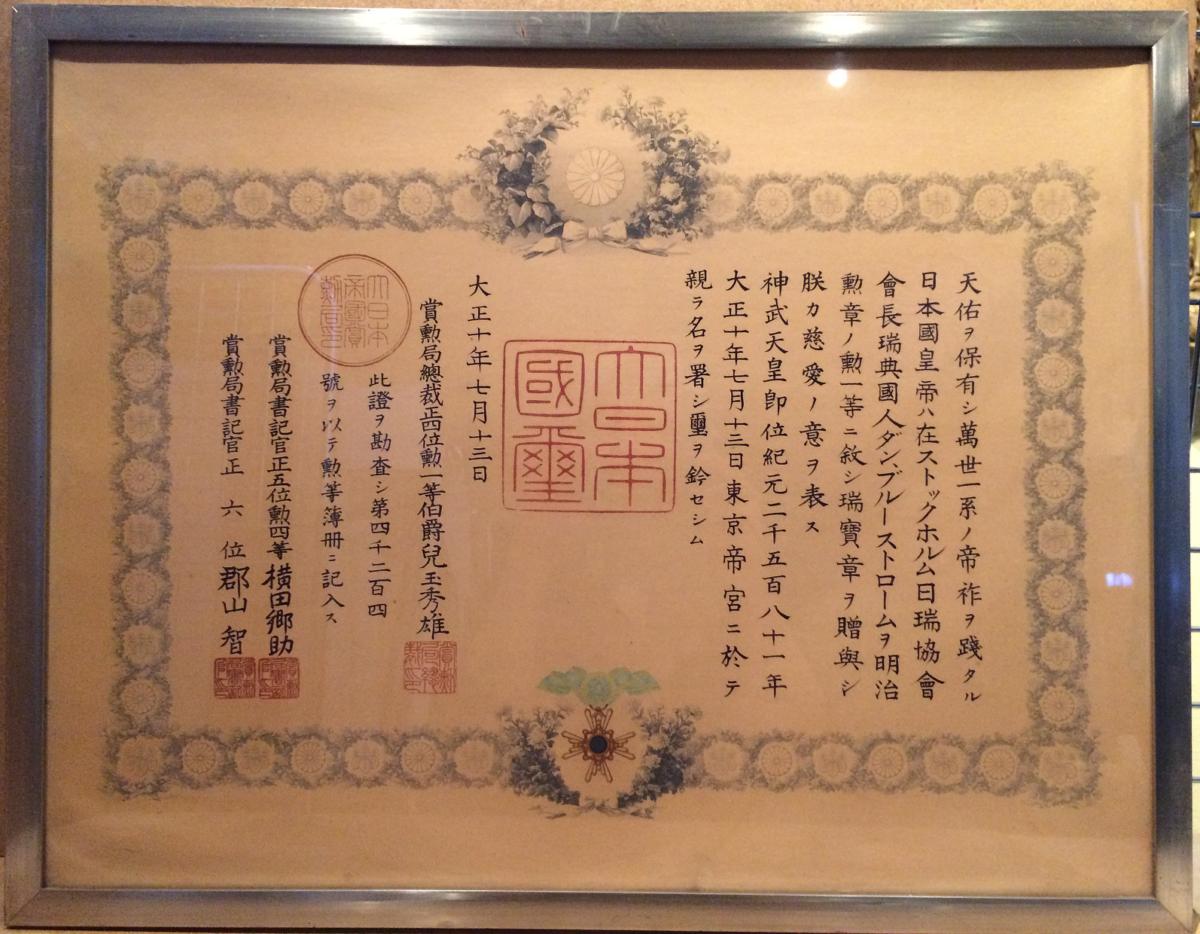 天佑ヲ保有シ萬世一系ノ帝祚ヲ踐タル
日本國皇帝ハ在ストックホルム日瑞協會
會長瑞典國人ダン、ブルーストロームヲ明治
勲章ノ勲一等ニ敘シ瑞寶章ヲ贈與シ
朕カ慈愛ノ意ヲ表ス
神武天皇即位紀元二千五百八十一年
大正十年七月十三日東京帝宮ニ於テ
親ラ名ヲ署シ璽ヲ鈐セシム
大日本
國璽
大正十年七月十三日
賞勲局總裁正四位勲一等伯爵兒玉秀雄
此證ヲ勘査シ第四千二百四
號ヲ以テ勲等簿冊ニ記入ス
大日本
帝國賞
勲局印
賞勲局書記官正五位勲四等横田郷助
賞勲局書記官正六位郡山智